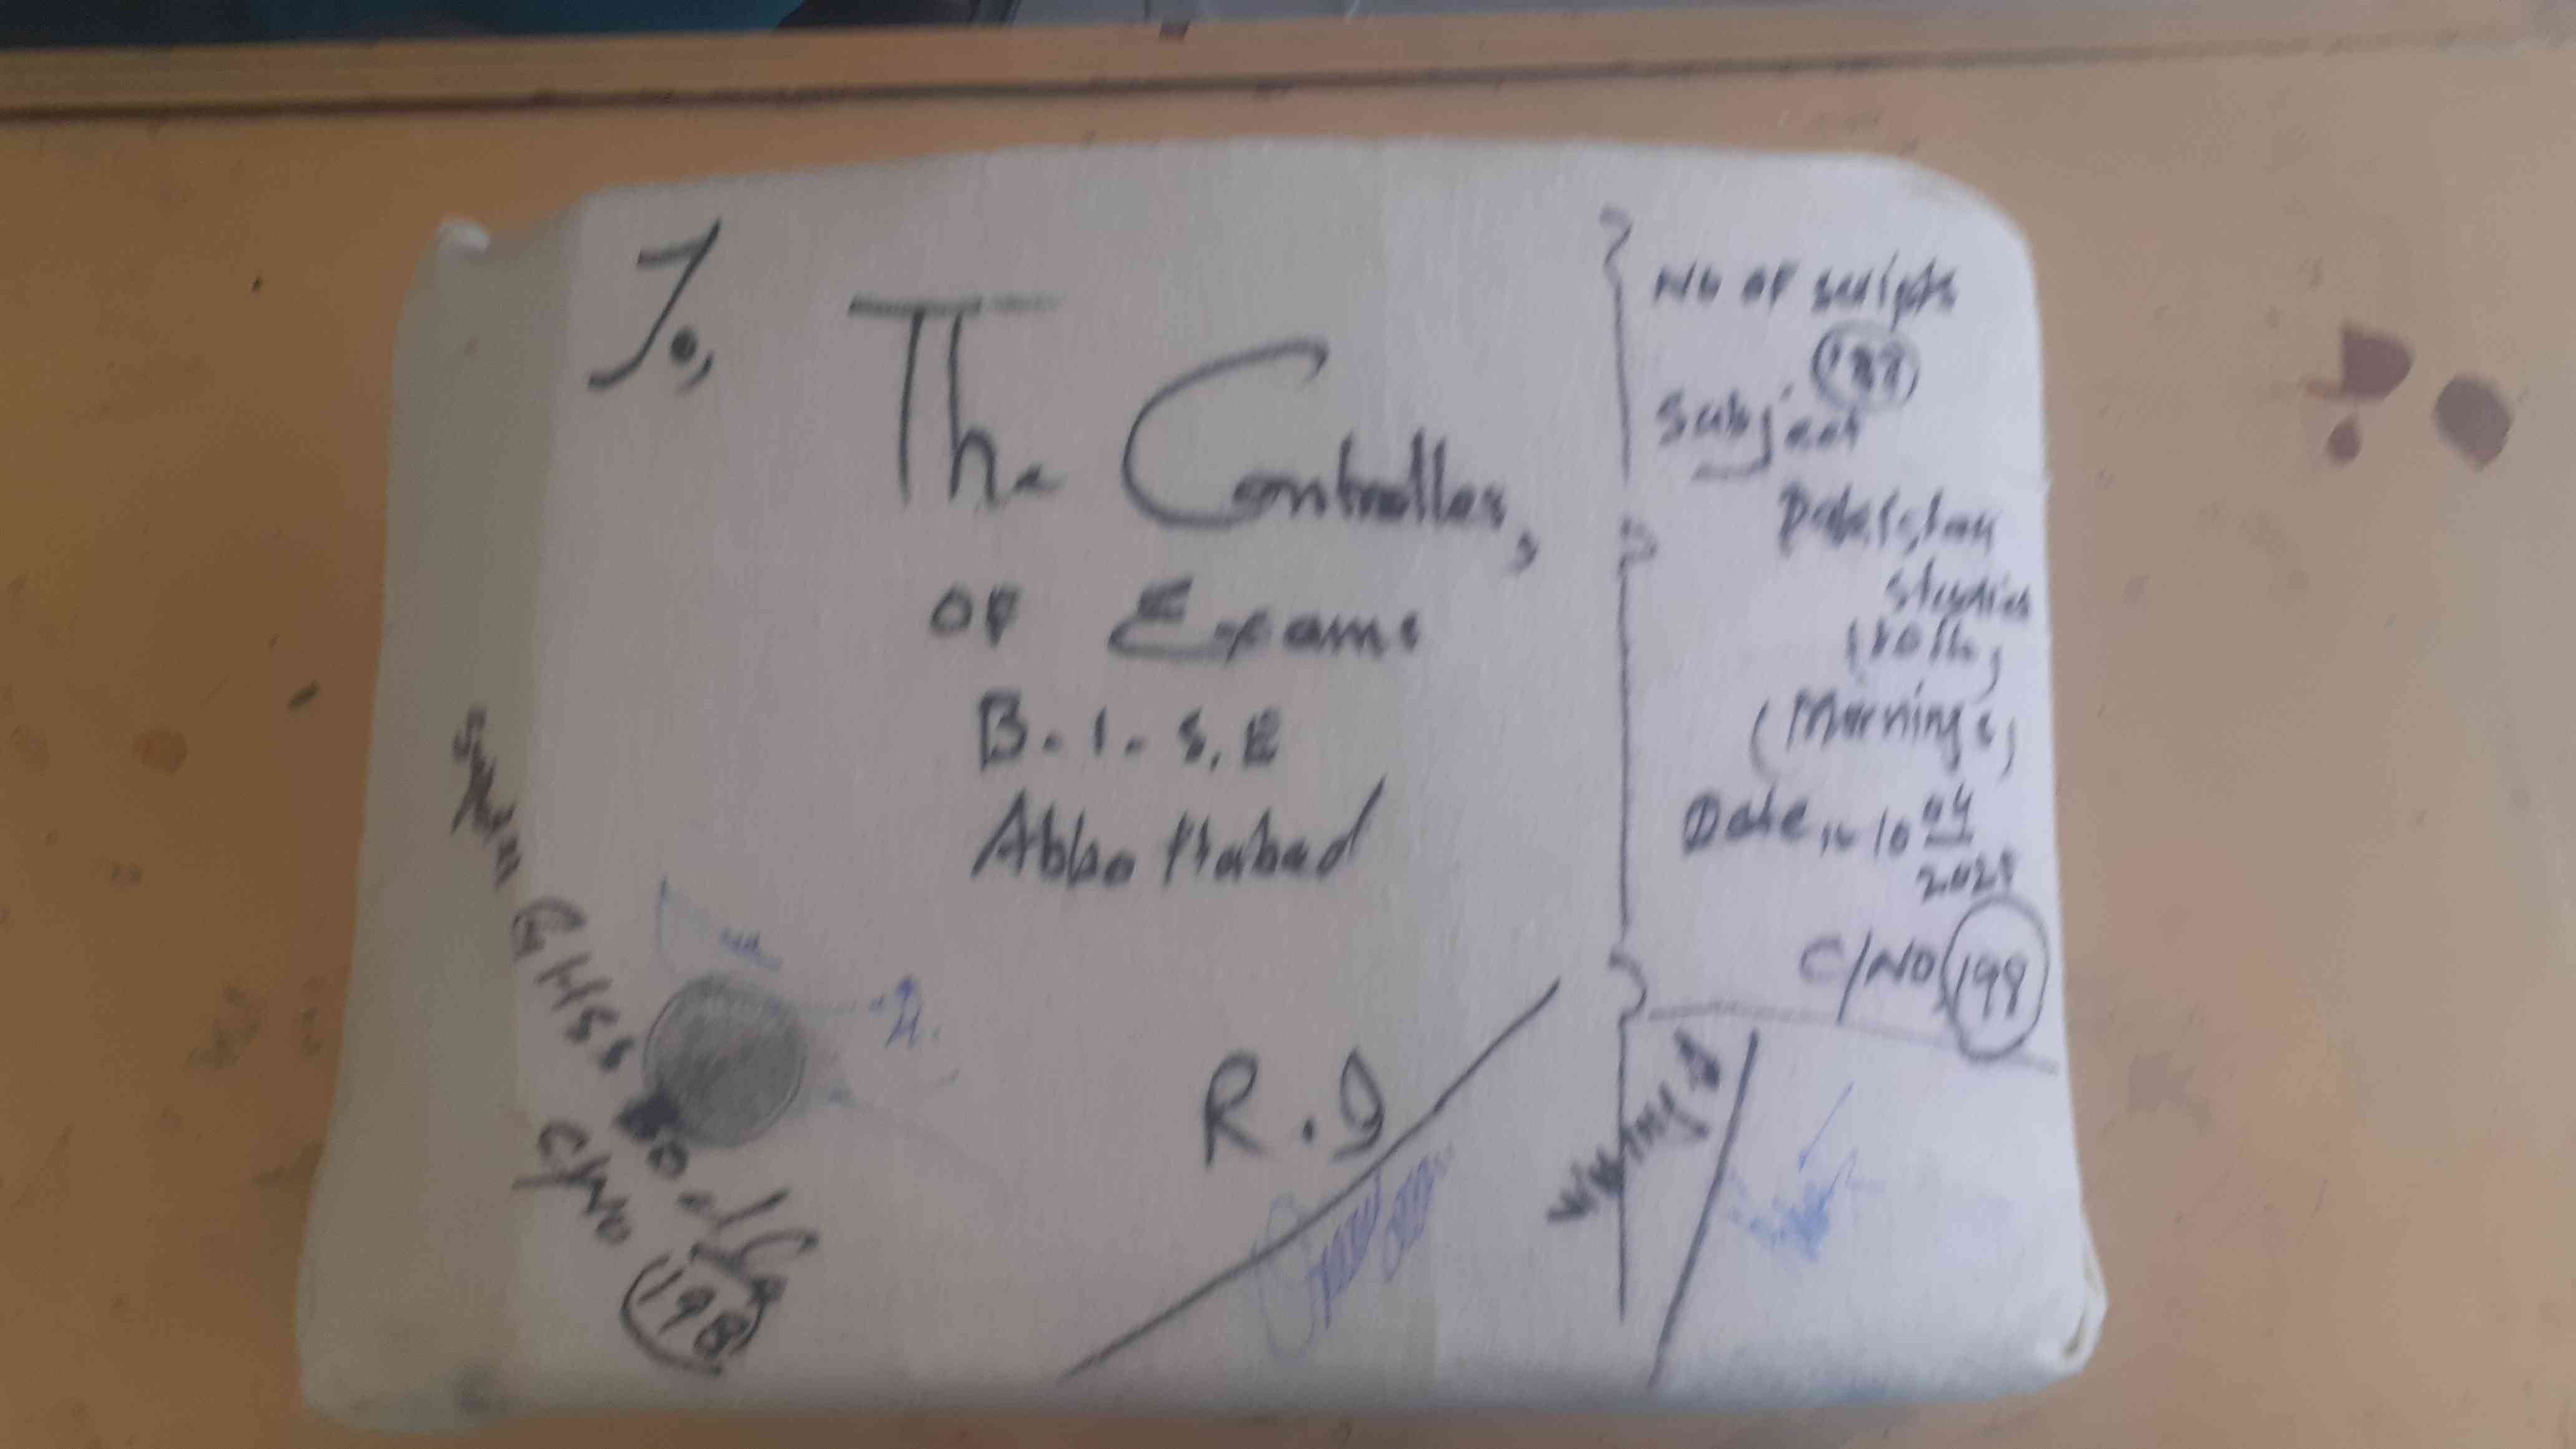 To,
The Controller,
OF Exams
B.I.S.E
Abbottabad
R.I
No OF scripts
Subject
Pakistan
Studies
(10th)
(Morning)
Date 10 04
C/NO 198
GHSS
C/No 198